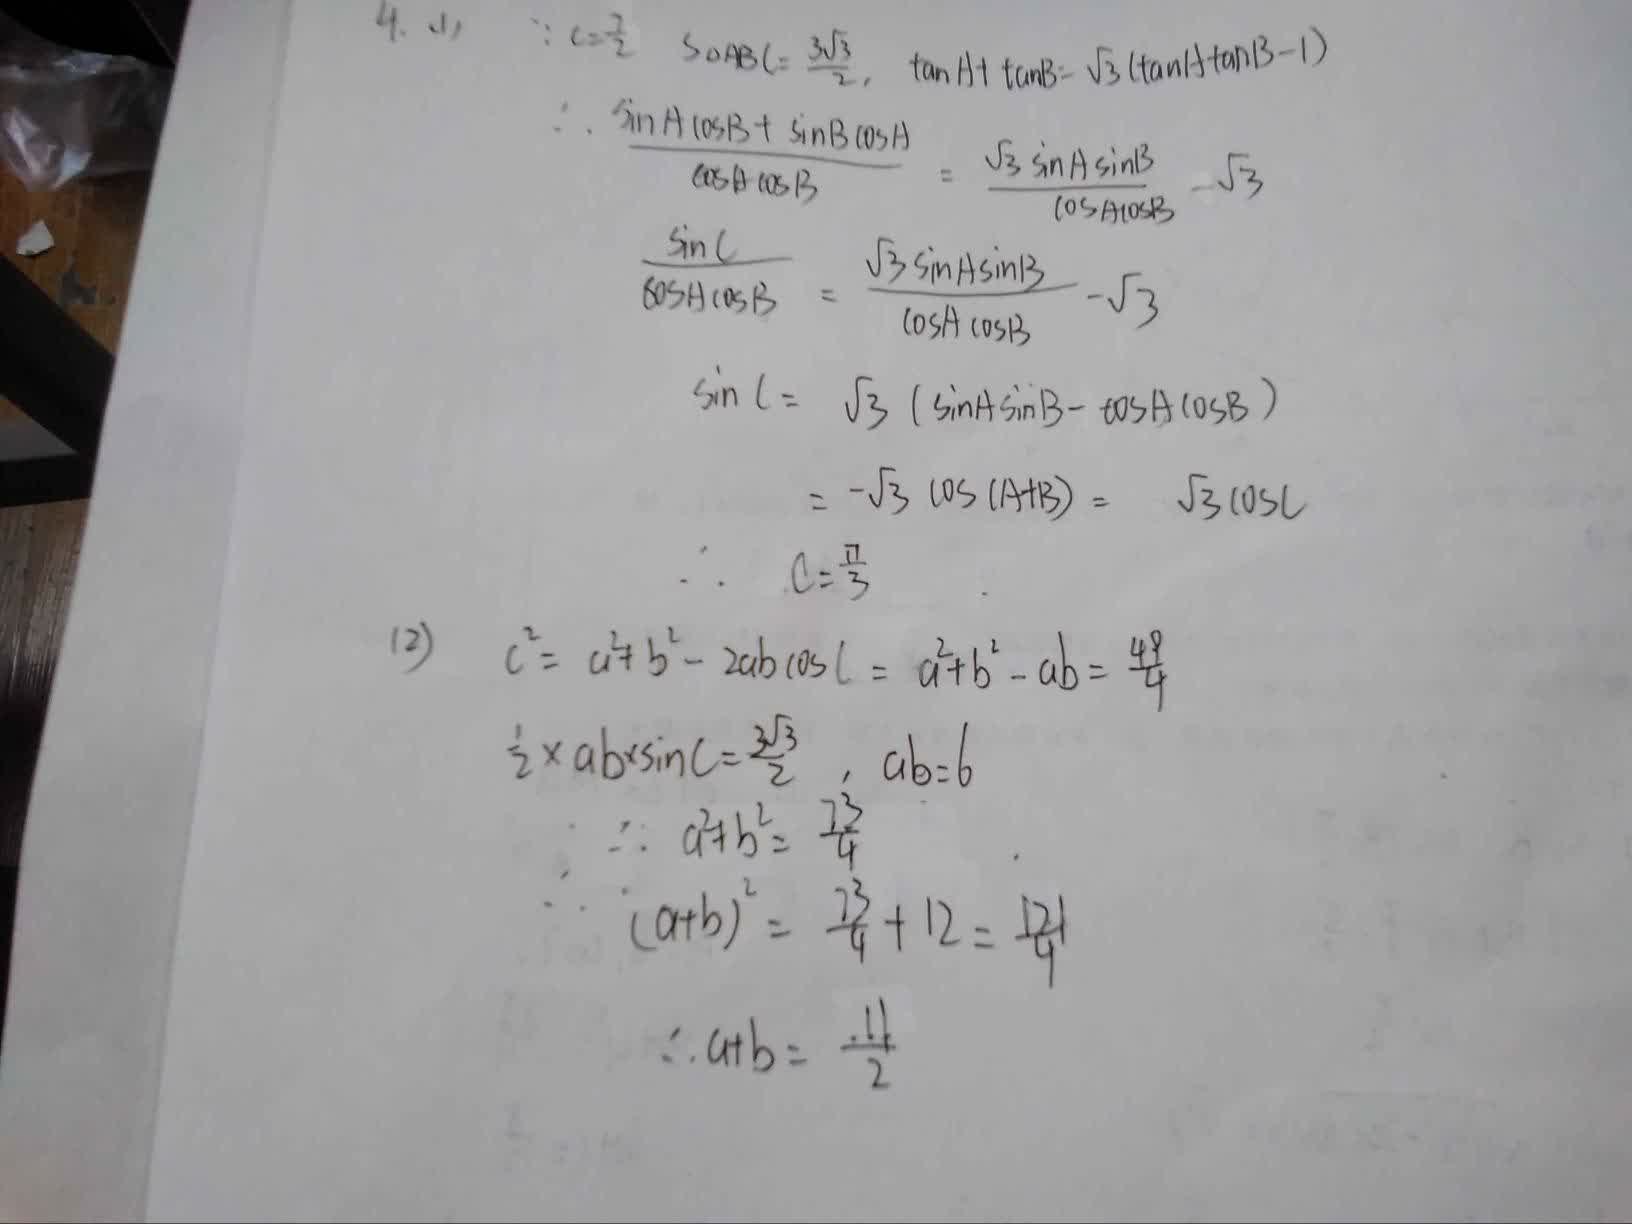 4. (1) ∵ c=7/2 S△ABC=3√3/2, tanA+tanB=√3(tanAtanB-1)
∴ (sinAcosB+sinBcosA)/(cosAcosB) = (√3sinAsinB)/(cosAcosB) -√3
sinC/(cosAcosB) = (√3sinAsinB)/(cosAcosB) -√3
sinC= √3(sinAsinB-cosAcosB)
= -√3cos(A+B)= √3cosC
∴ C=π/3
(2) c²=a²+b²-2abcosC=a²+b²-ab=49/4
1/2×ab×sinC=3√3/2, ab=6
∴ a²+b²=73/4
∴ (a+b)²=73/4+12=121/4
∴a+b=11/2